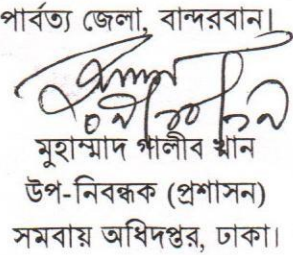 পার্বত্য জেলা, বান্দরবান।
মুহাম্মাদ গালীব খান
উপ-নিবন্ধক (প্রশাসন)
সমবায় অধিদপ্তর, ঢাকা।